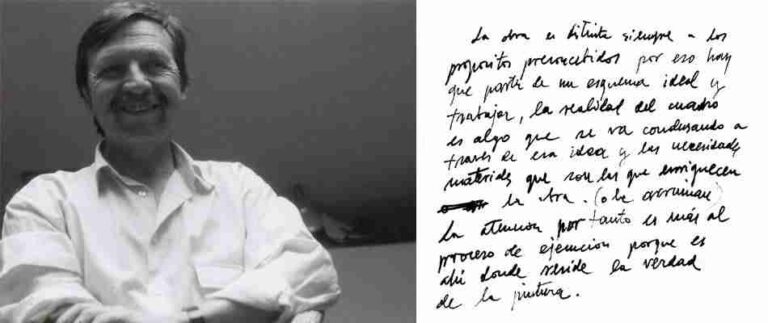 La obra es distinta siempre a los
propositos preconcebidos por eso hay
que partir de un esquema ideal y
trabajar, la realidad del cuadro
es algo que se va condensando a
través de esa idea y las necesidades
materiales que son las que enriquecen
la obra. (o la arruinan)
La atencion por tanto es más al
proceso de ejecucion porque es
ahi donde reside la verdad
de la pintura.